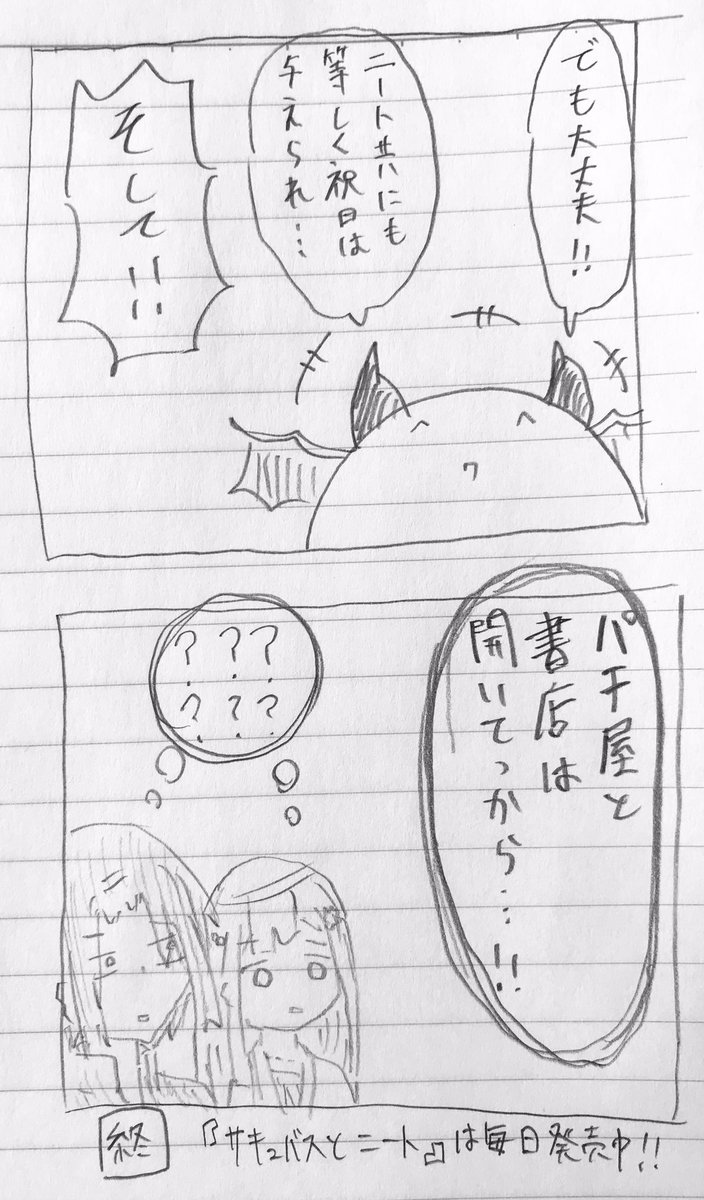 でも大丈夫!!
ニート共にも
等しく祝日は
与えられ…
そして!!
パチ屋と
書店は
開いてっから…!!
???
???
終
『サキュバスとニート』は毎日発売中!!